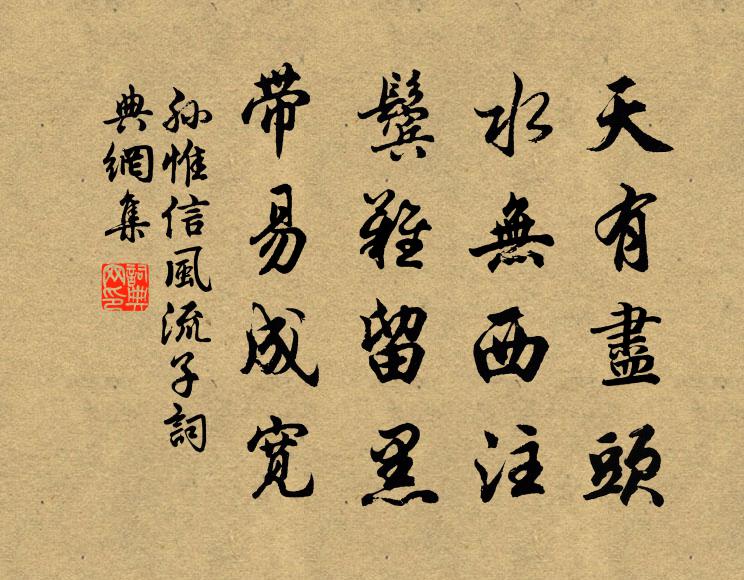 天有盡頭
水無西注
鬓難留黑
带易成寬
孙惟信風流子詞
典網集
詞典
网印